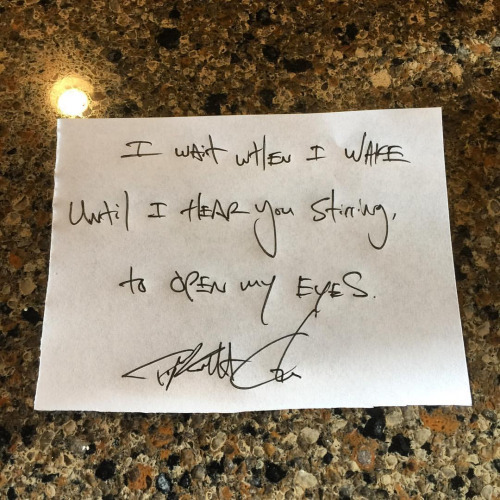 I wait when I wake
until I hear you stirring,
to open my eyes.